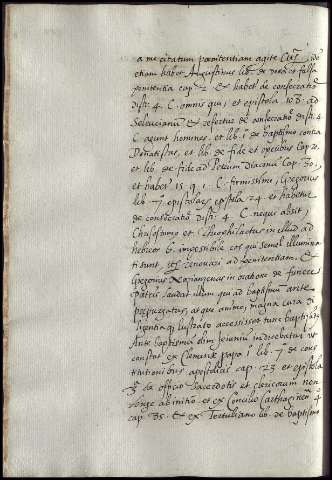 a me citatum poenitentiam agite etc.
etiam habet Augustinus lib. de vera et falsa
penitentia cap. 2 et habet. de consecratio
dist. 4 C. omnis qui, et epistola 108 ad
Seleucianū et refertur de consecratio dist. 4
C. aeunt homines, et lib. 1 de baptismo contra
Donatistas, et lib. de fide et operibus cap. 20.
et lib. de fide ad Petrum Diaconū cap. 30,
et habet 15 q. 1 C. firmissime, Gregorius
lib. 7 epistolarū epistola 24 et habetur
de consecratio dist. 4 C. neque absit,
Chrisostomo et Theophilactus in illud ad
hebreos 6. impossibile eos qui semel illumina
ti sunt, renovari ad poenitentiam. Et
Gregorius Nazianzenus in oratione de funere
Patris laudat illum qui ad baptismū ante
praepurgatus, atque animo, magna cura di
ligentia lustrato accessisset tunc baptizatū
Ante baptismū dim jeiuniū indicebatur ut
constat ex Clemente papa 1 lib. 7 de cons
titutionibus apostolicis cap. 23 et epistola
3 de officio sacerdotis et clericorum non
longe ab initio et ex Concilio Carthaginen. 4
cap. 85. et ex Tertuliano lib. de baptismo